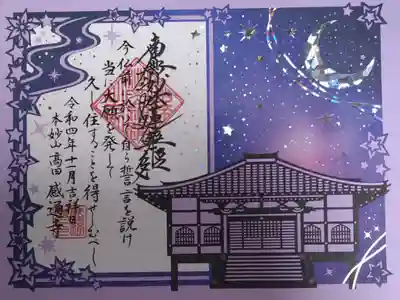 南無妙法蓮華経
今仏前に於て自ら誓言を説け
当に大願を発して
久しく住することを得せしむべし
令和四年十一月吉祥日
本妙山高田感通寺